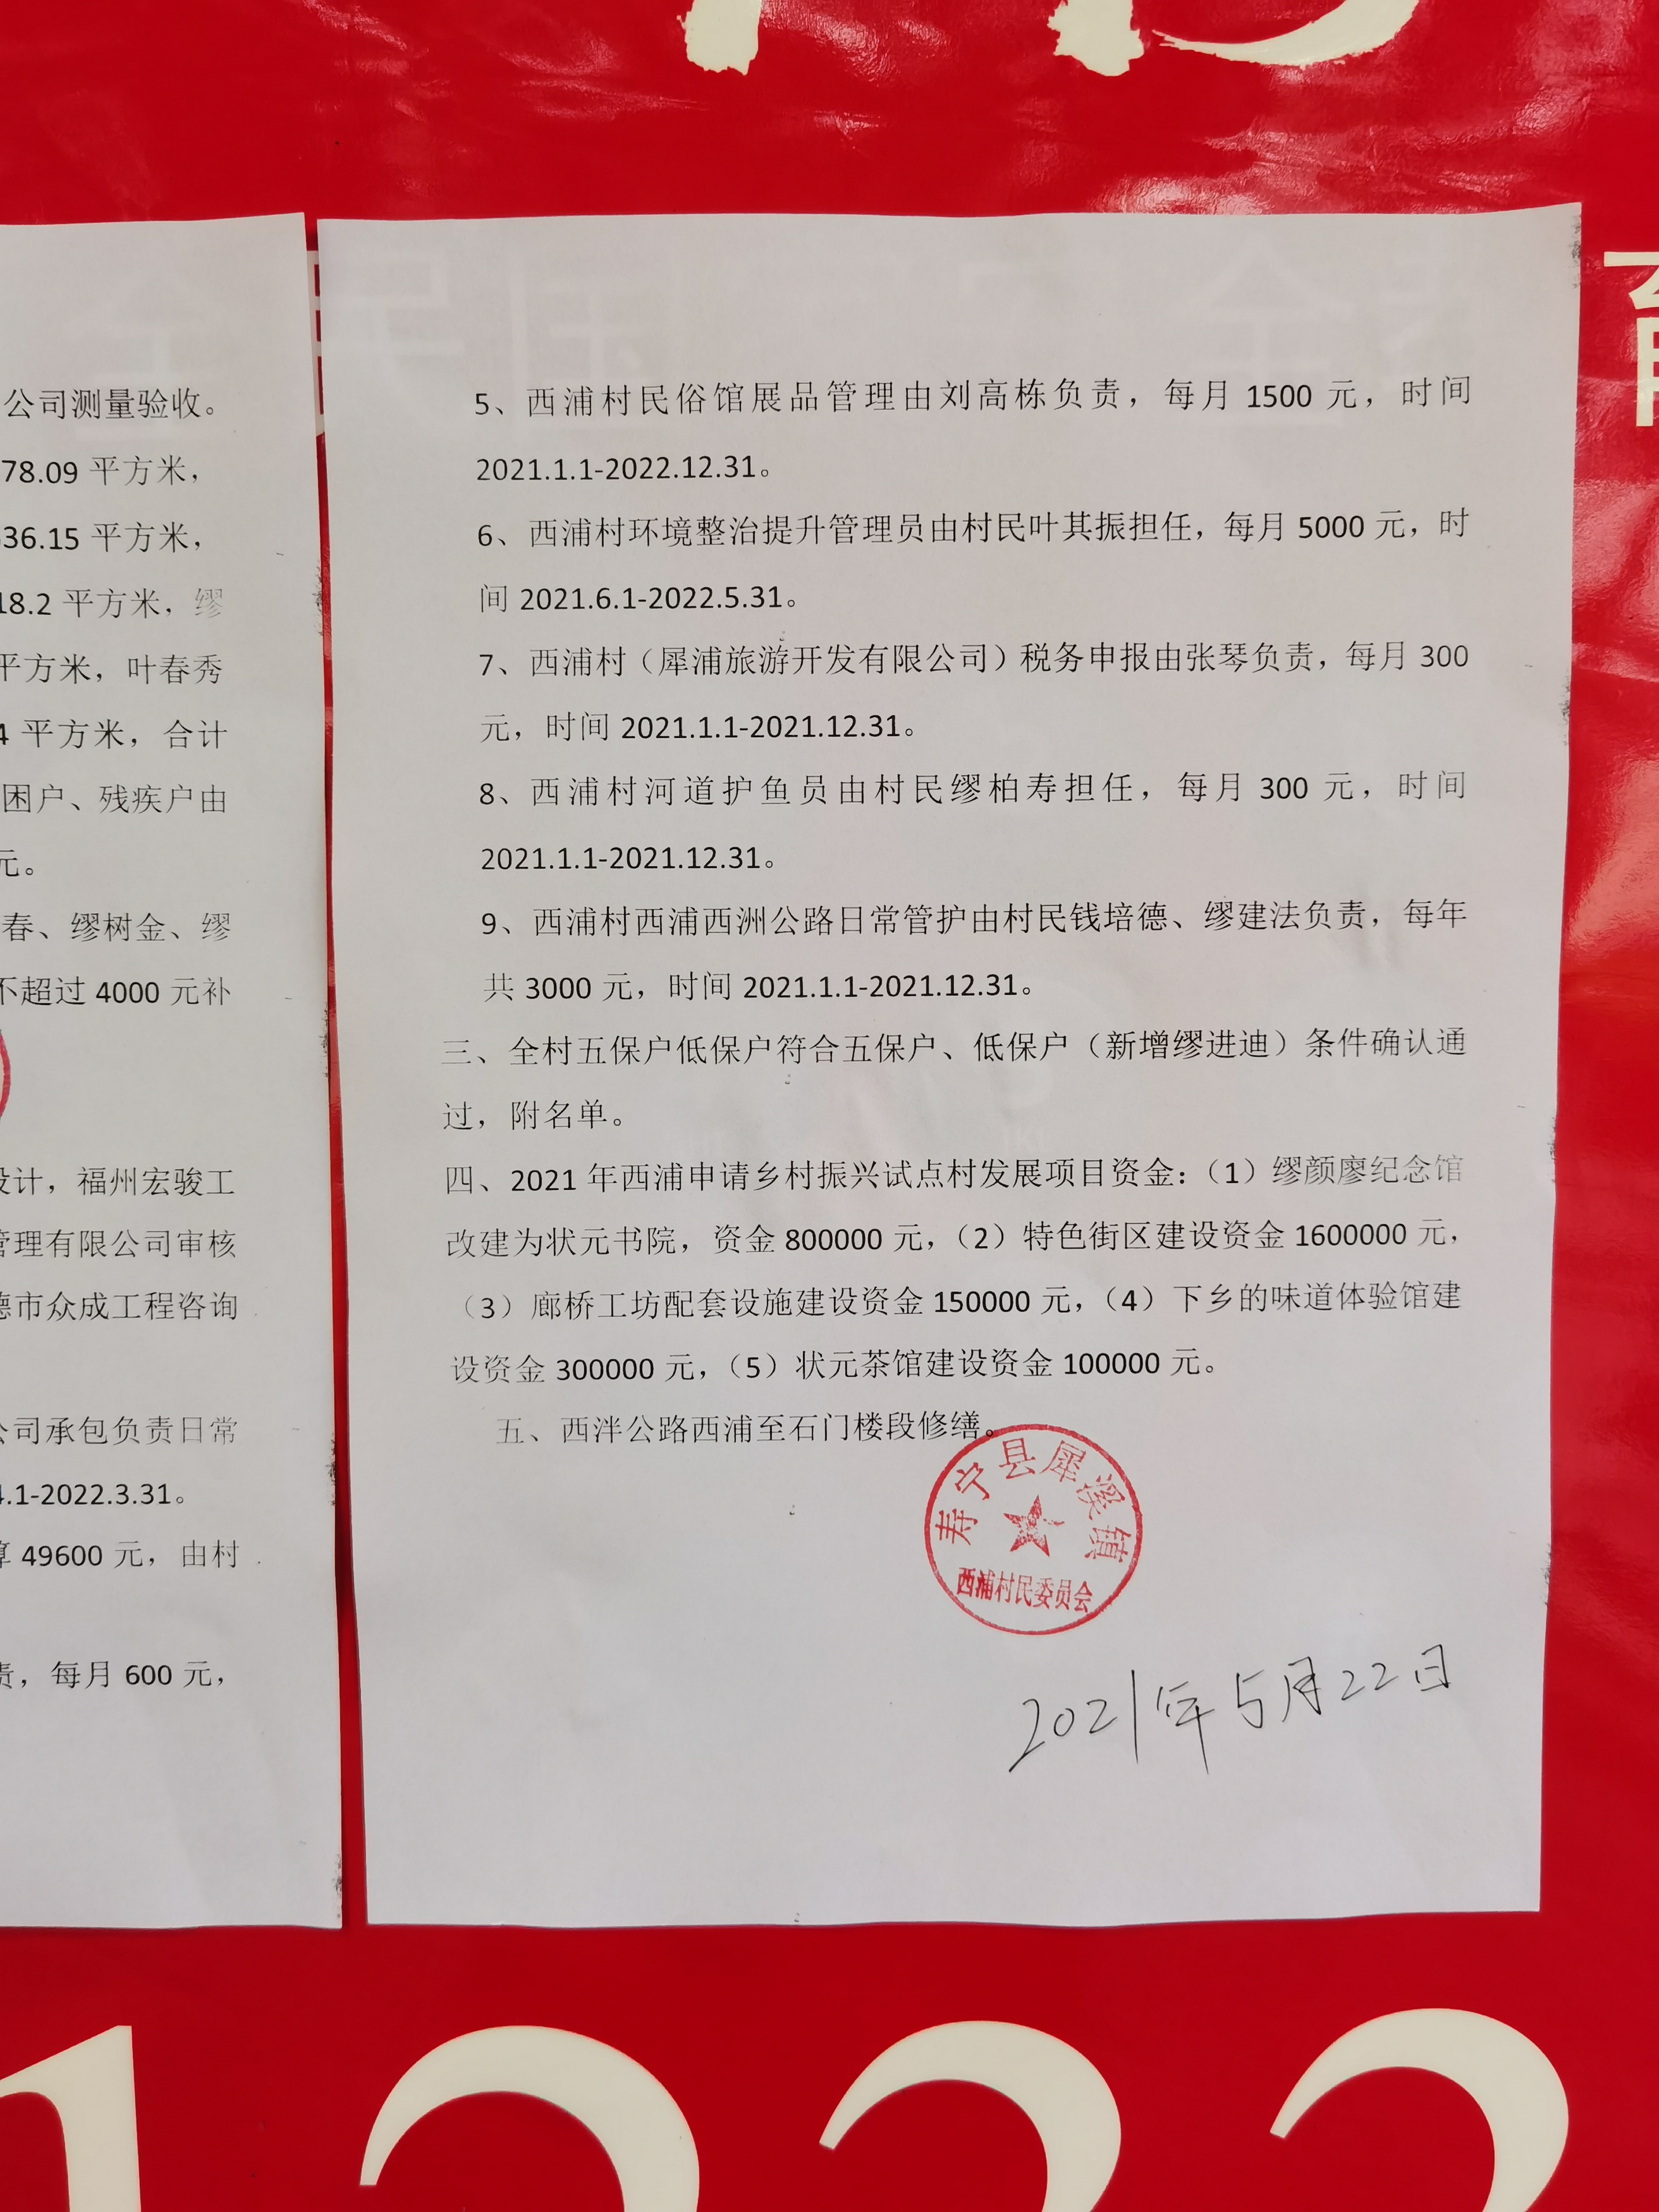 公司测量验收。
78.09 平方米，
36.15 平方米，
18.2 平方米，缪
平方米，叶春秀
4 平方米，合计
困户、残疾户由
元。
春、缪树金、缪
不超过 4000 元补
设计，福州宏骏工
管理有限公司审核
德市众成工程咨询
公司承包负责日常
.1-2022.3.31。
算 49600 元，由村
责，每月 600 元，
5、西浦村民俗馆展品管理由刘高栋负责，每月 1500 元，时间
2021.1.1-2022.12.31。
6、西浦村环境整治提升管理员由村民叶其振担任，每月 5000 元，时
间 2021.6.1-2022.5.31。
7、西浦村（犀浦旅游开发有限公司）税务申报由张琴负责，每月 300
元，时间 2021.1.1-2021.12.31。
8、西浦村河道护鱼员由村民缪柏寿担任，每月 300 元，时间
2021.1.1-2021.12.31。
9、西浦村西浦西洲公路日常管护由村民钱培德、缪建法负责，每年
共 3000 元，时间 2021.1.1-2021.12.31。
三、全村五保户低保户符合五保户、低保户（新增缪进迪）条件确认通
过，附名单。
四、2021 年西浦申请乡村振兴试点村发展项目资金：（1）缪颜廖纪念馆
改建为状元书院，资金 800000 元，（2）特色街区建设资金 1600000 元，
（3）廊桥工坊配套设施建设资金 150000 元，（4）下乡的味道体验馆建
设资金 300000 元，（5）状元茶馆建设资金 100000 元。
五、西泮公路西浦至石门楼段修缮。
寿宁县犀溪镇
西浦村民委员会
2021年5月22日
1222